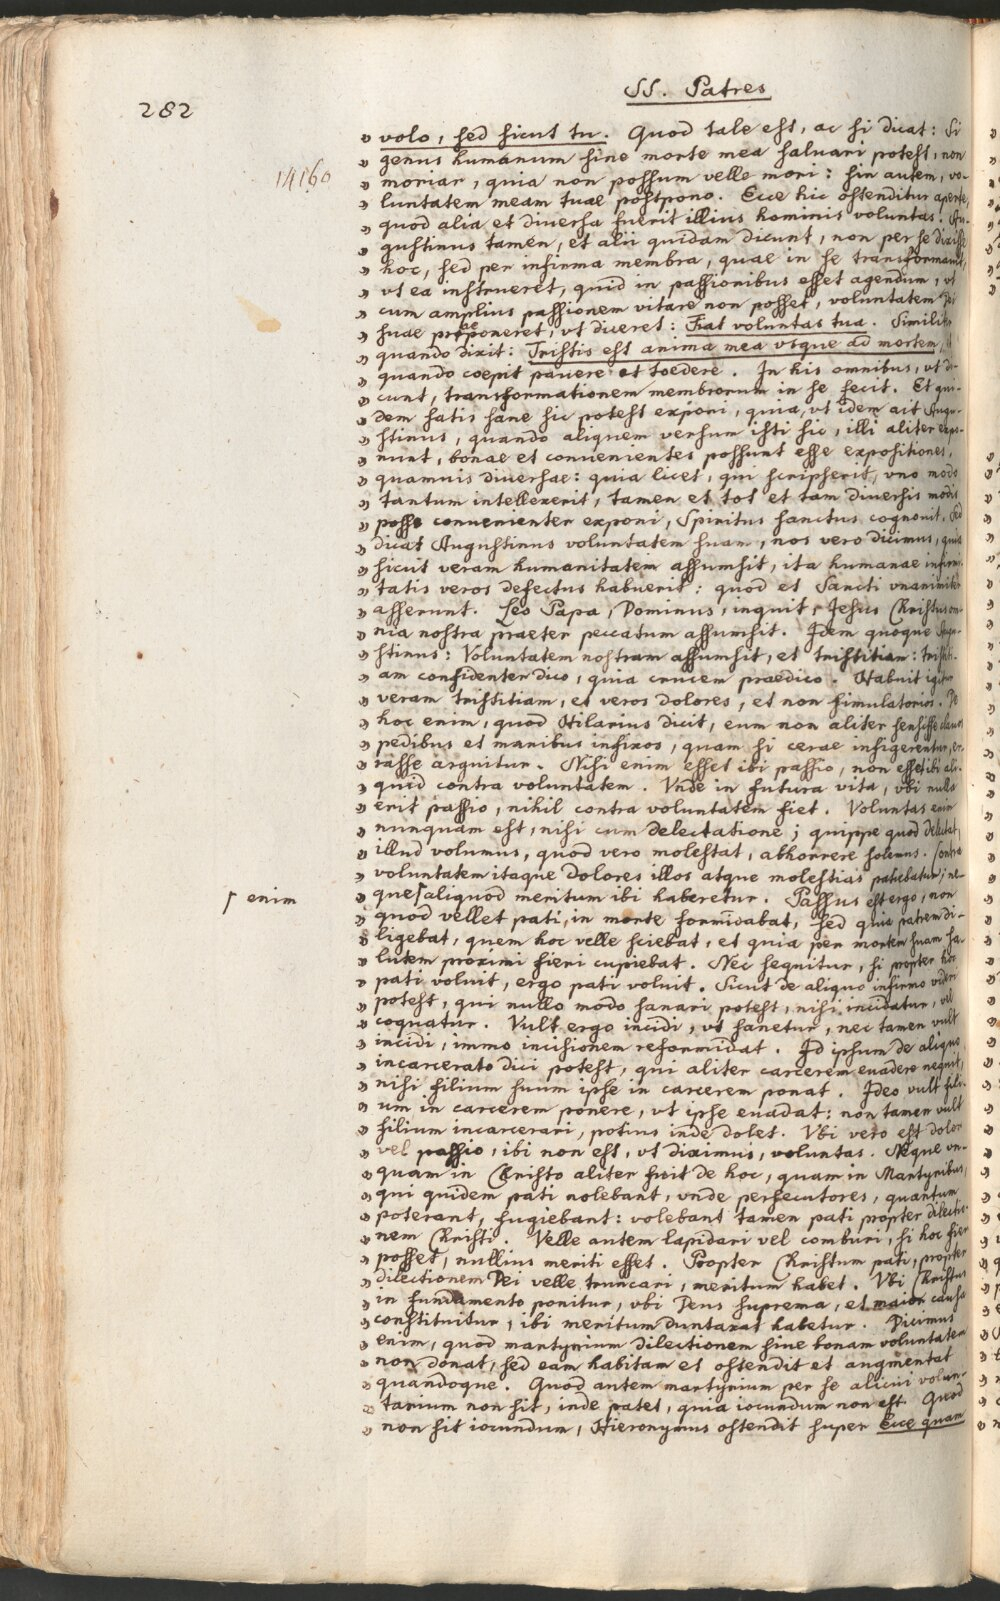 282
SS. Patres
14160
volo, sed sicut tu. Quod tale est, ac si dicat: Si
genus humanum sine morte mea saluari potest, non
moriar, quia non possum velle mori: sin autem, vo-
luntatem meam tuae postpono. Ecce hic ostenditur aperte,
quod alia et diuersa fuerit illius hominis voluntas. Au-
gustinus tamen, et alii quidam dicunt, non per se dixisse
hoc, sed per infirma membra, quae in se transformauit,
vt ea instrueret, quid in passionibus esset agendum, vt
cum amplius passionem vitare non posset, voluntatem Dei
suae praeponeret, vt diceret: Fiat voluntas tua. Similiter
quando dixit: Tristis est anima mea vsque ad mortem,
quando coepit pauere et toedere. In his omnibus, vt di-
cunt, transformationem membrorum in se fecit. Et qui-
dem satis sane sic potest exponi, quia, vt idem ait Augu-
stinus, quando aliquem versum isti sic, illi aliter expo-
nunt, bonae et conuenientes possunt esse expositiones,
quamuis diuersae: quia licet, qui scripserit, vno modo
tantum intellexerit, tamen et tot et tam diuersis modis
posse conuenienter exponi, Spiritus sanctus cognouit. Sed
dicat Augustinus voluntatem suam, nos vero dicimus, quia
sicut veram humanitatem assumsit, ita humanae infirmi-
tatis veros defectus habuerit: quod et Sancti vnanimiter
asserunt. Leo Papa, Dominus, inquit, Jesus Christus om-
nia nostra praeter peccatum assumsit. Idem quoque Augu-
stinus: Voluntatem nostram assumsit, et tristitiam: tristiti-
am confidenter dico, quia crucem praedico. Habuit igitur
veram tristitiam, et veros dolores, et non simulatorios. Per
hoc enim, quod Hilarius dicit, eum non aliter sensisse clauos
pedibus et manibus infixos, quam si cerae infigerentur, er-
rasse arguitur. Nisi enim esset ibi passio, non esset ibi ali-
quid contra voluntatem. Vnde in futura vita, vbi nulla
erit passio, nihil contra voluntatem fiet. Voluntas enim
nunquam est, nisi cum delectatione; quippe quod delectat,
illud volumus, quod vero molestat, abhorrere solemus. Contra
voluntatem itaque dolores illos atque molestias patiebatur; ne-
que⌈aliquod meritum ibi haberetur. Passus est ergo, non
⌈ enim
quod vellet pati, in morte formidabat, sed quia patrem di-
ligebat, quem hoc velle sciebat, et quia per mortem suam sa-
lutem proximi fieri cupiebat. Nec sequitur, si propter hoc
pati voluit, ergo pati voluit. Sicut de aliquo infirmo videri
potest, qui nullo modo sanari potest, nisi incidatur, vel
coquatur. Vult ergo incidi, vt sanetur, nec tamen vult
incidi, immo incisionem reformidat. Id ipsum de aliquo
incarcerato dici potest, qui aliter carcerem euadere nequit,
nisi filium suum ipse in carcerem ponat. Ideo vult fili-
um in carcerem ponere, vt ipse euadat: non tamen vult
filium incarcerari, potius inde dolet. Vbi vero est dolor
vel passio, ibi non est, vt diximus, voluntas. Neque vn-
quam in Christo aliter fuit de hoc, quam in Martyribus,
qui quidem pati nolebant, vnde persecutores, quantum
poterant, fugiebant: volebant tamen pati propter dilectio-
nem Christi. Velle autem lapidari vel comburi, si hoc fieri
posset, nullius meriti esset. Propter Christum pati, propter
dilectionem Dei velle truncari, meritum habet. Vbi Christus
in fundamento ponitur, vbi Deus suprema, et maior causa
constituitur, ibi meritum duntaxat habetur. Dicimus
enim, quod martyrium dilectionem siue bonam voluntatem
non donat, sed eam habitam et ostendit et augmentat
quandoque. Quod autem martyrium per se alicui volun-
tarium non sit, inde patet, quia iocundum non est. Quod
non sit iocundum, Hieronymus ostendit super Ecce quam